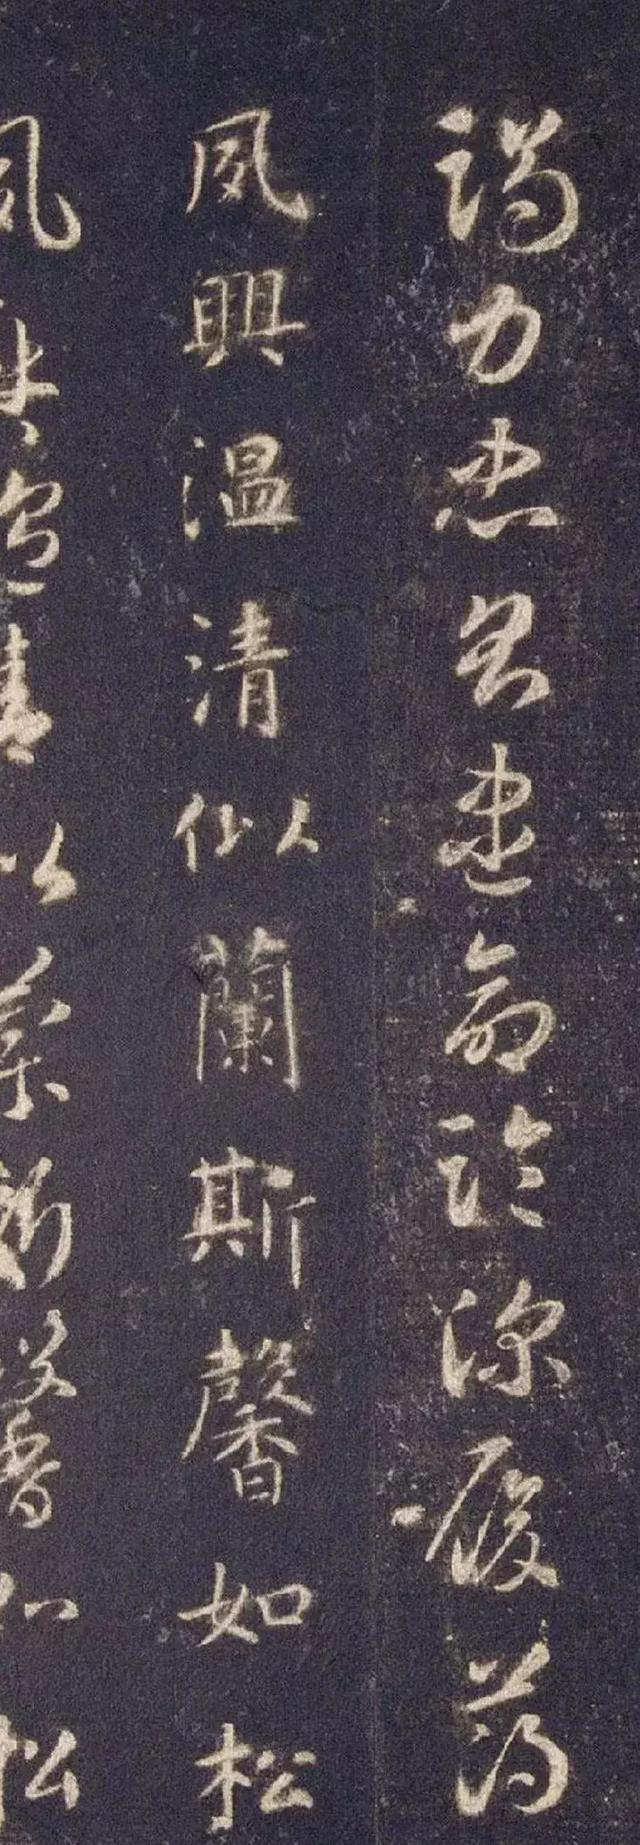 竭力忠則盡命臨深履薄
夙興温清似蘭斯馨如松
夙興温清似蘭斯馨如松